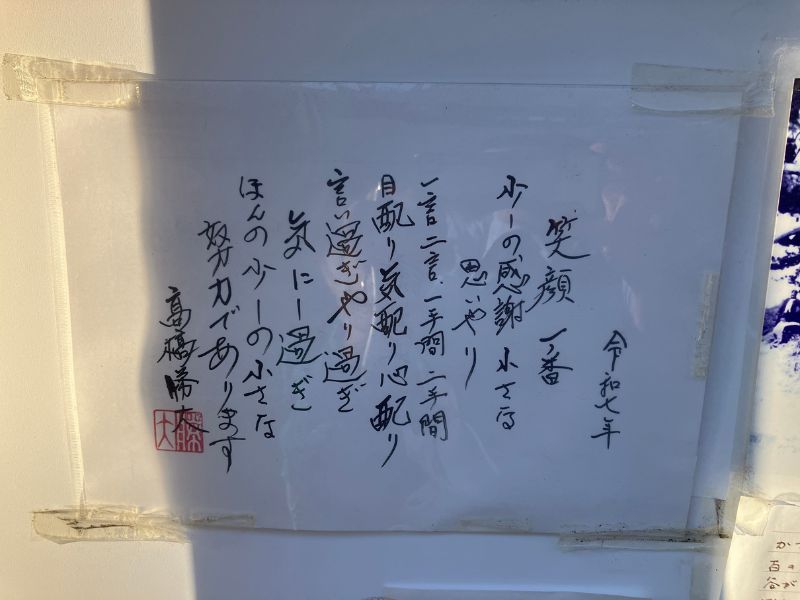 令和七年
笑顔 一番
少しの感謝 小さな
思いやり
一言二言、一手間二手間
目配り気配り心配り
言い過ぎやり過ぎ
気にし過ぎ
ほんの少しの小さな
努力であります
高橋勝大
勝大
かつ
百
谷が